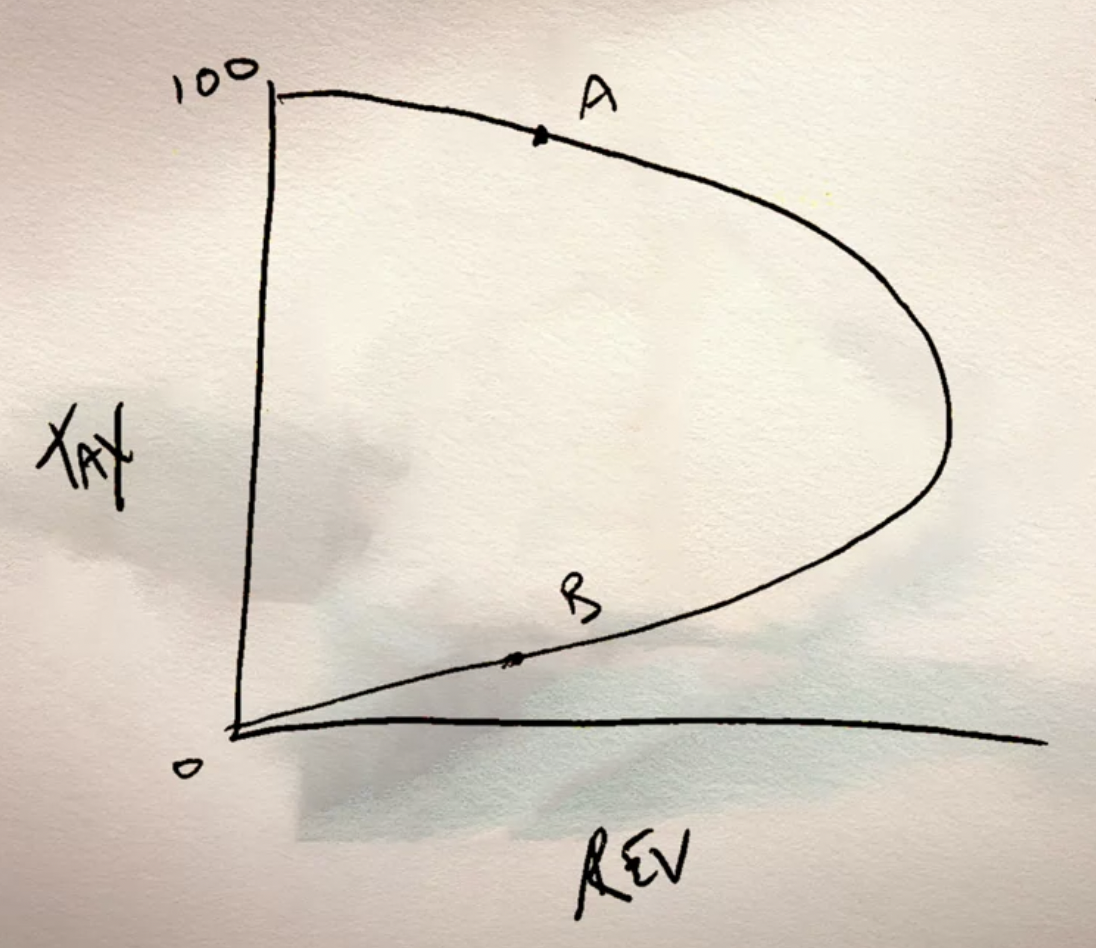 100
A
TAX
B
0
REV